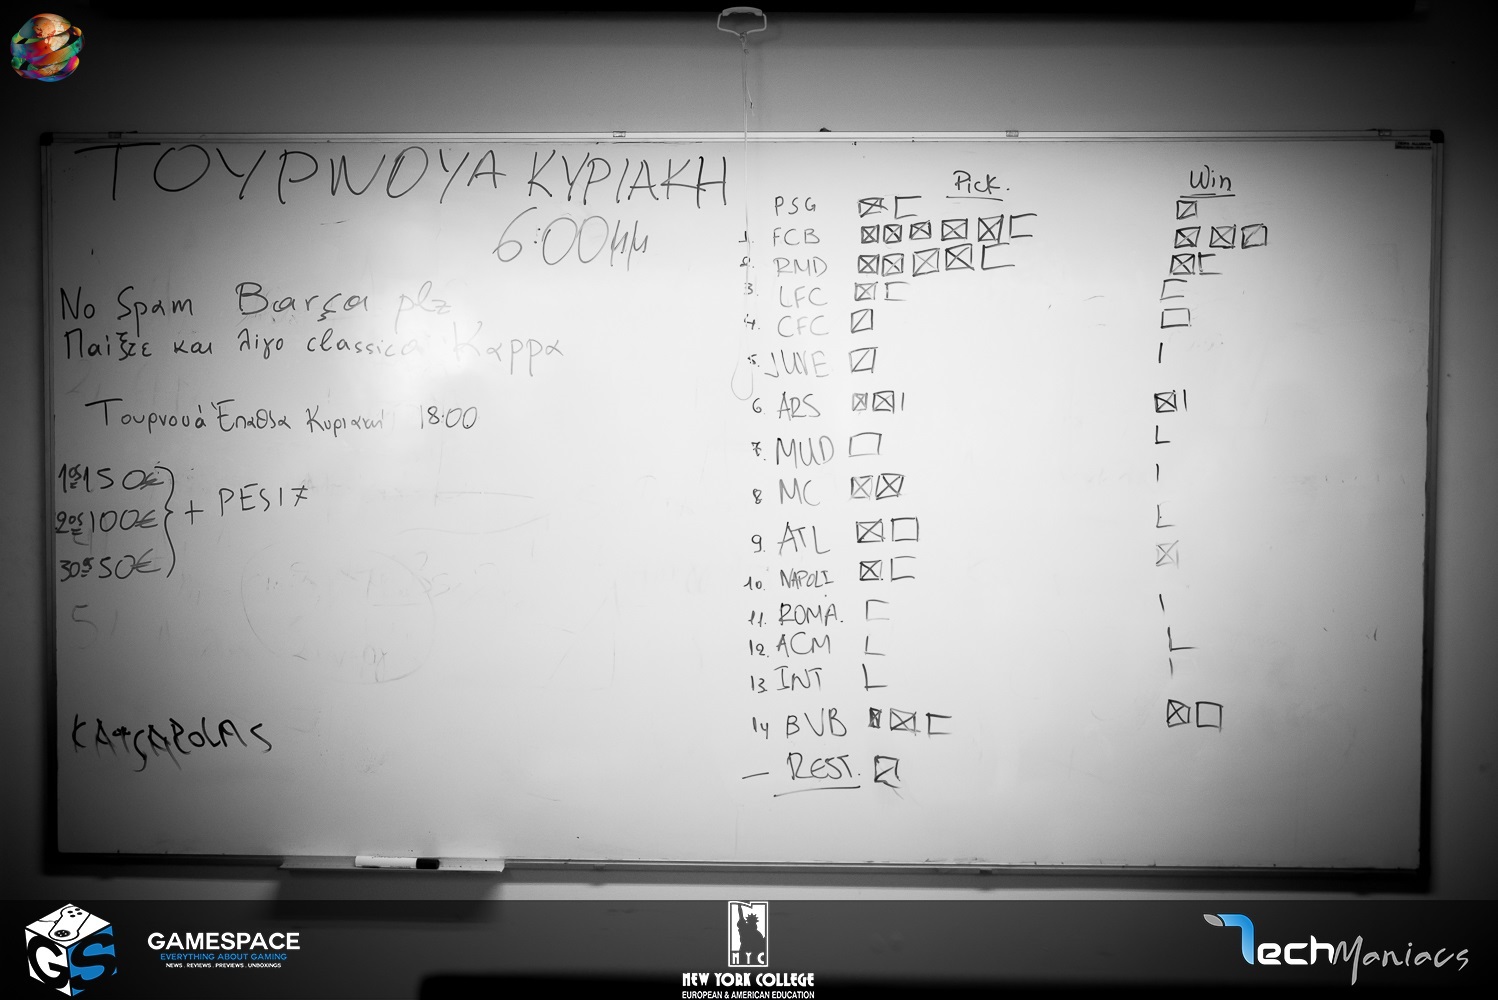 ΤΟΥΡΝΟΥΑ ΚΥΡΙΑΚΗ
6:00μμ
No Spam Barça plz
Παίξτε και λίγο classica Kappa
Τουρνουά Έπαθλα Κυριακή 18:00
1ος 150€
2ος 100€
3ος 50€
+ PES17
5
Pick.
Win
PSG
1. FCB
2. RMD
3. LFC
4. CFC
5. JUVE
6 ARS
7. MUD
8 MC
9. ATL
10. NAPOLI
11. ROMA.
12. ACM
13 INT
14 BVB
— REST.
GS
GAMESPACE
EVERYTHING ABOUT GAMING
NEWS . REVIEWS . PREVIEWS . UNBOXINGS
NYC
NEW YORK COLLEGE
EUROPEAN & AMERICAN EDUCATION
TechManiacs